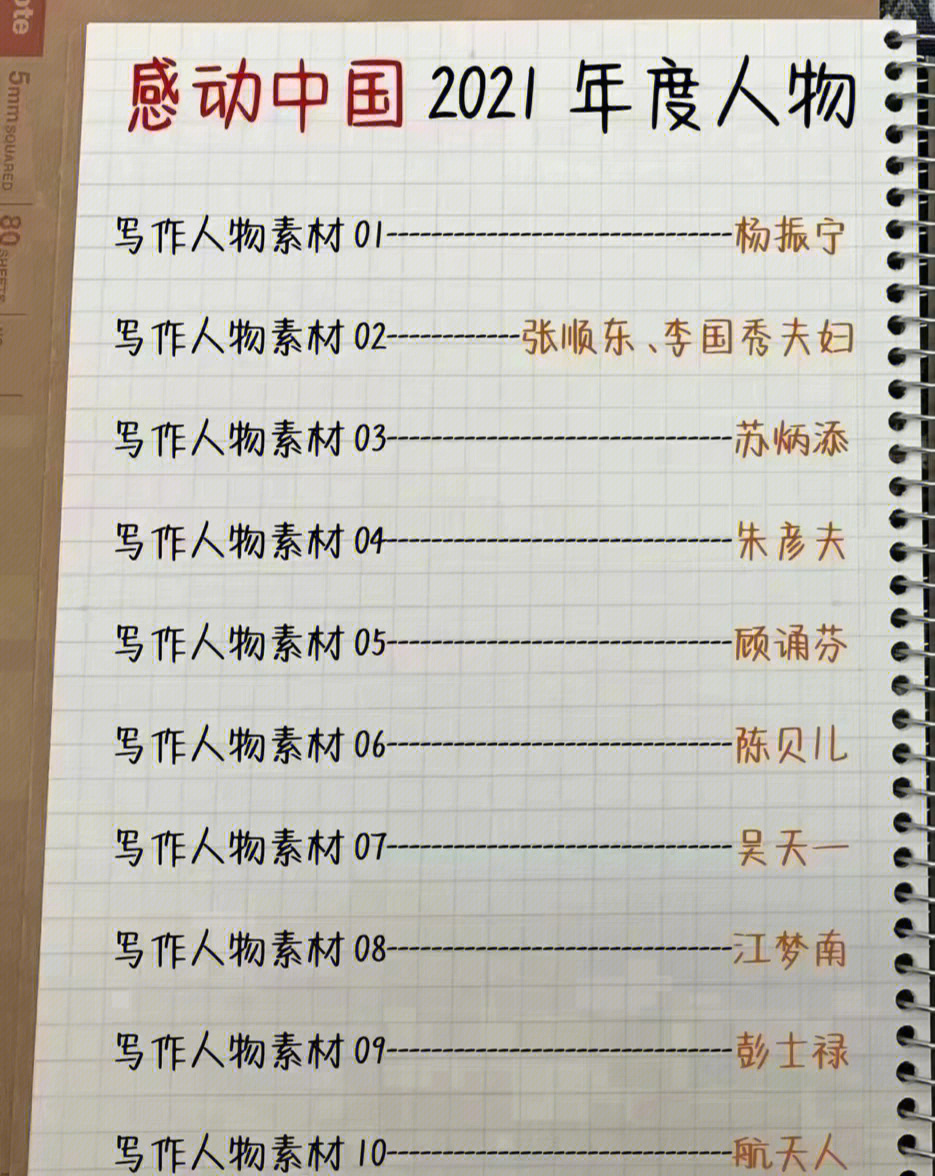 ote
5mm SQUARED
80 SHEETS
感动中国 2021 年度人物
写作人物素材 01------------------------杨振宁
写作人物素材 02----------张顺东、李国秀夫妇
写作人物素材 03------------------------苏炳添
写作人物素材 04------------------------朱彦夫
写作人物素材 05------------------------顾诵芬
写作人物素材 06------------------------陈贝儿
写作人物素材 07------------------------吴天一
写作人物素材 08------------------------江梦南
写作人物素材 09------------------------彭士禄
写作人物素材 10------------------------航天人